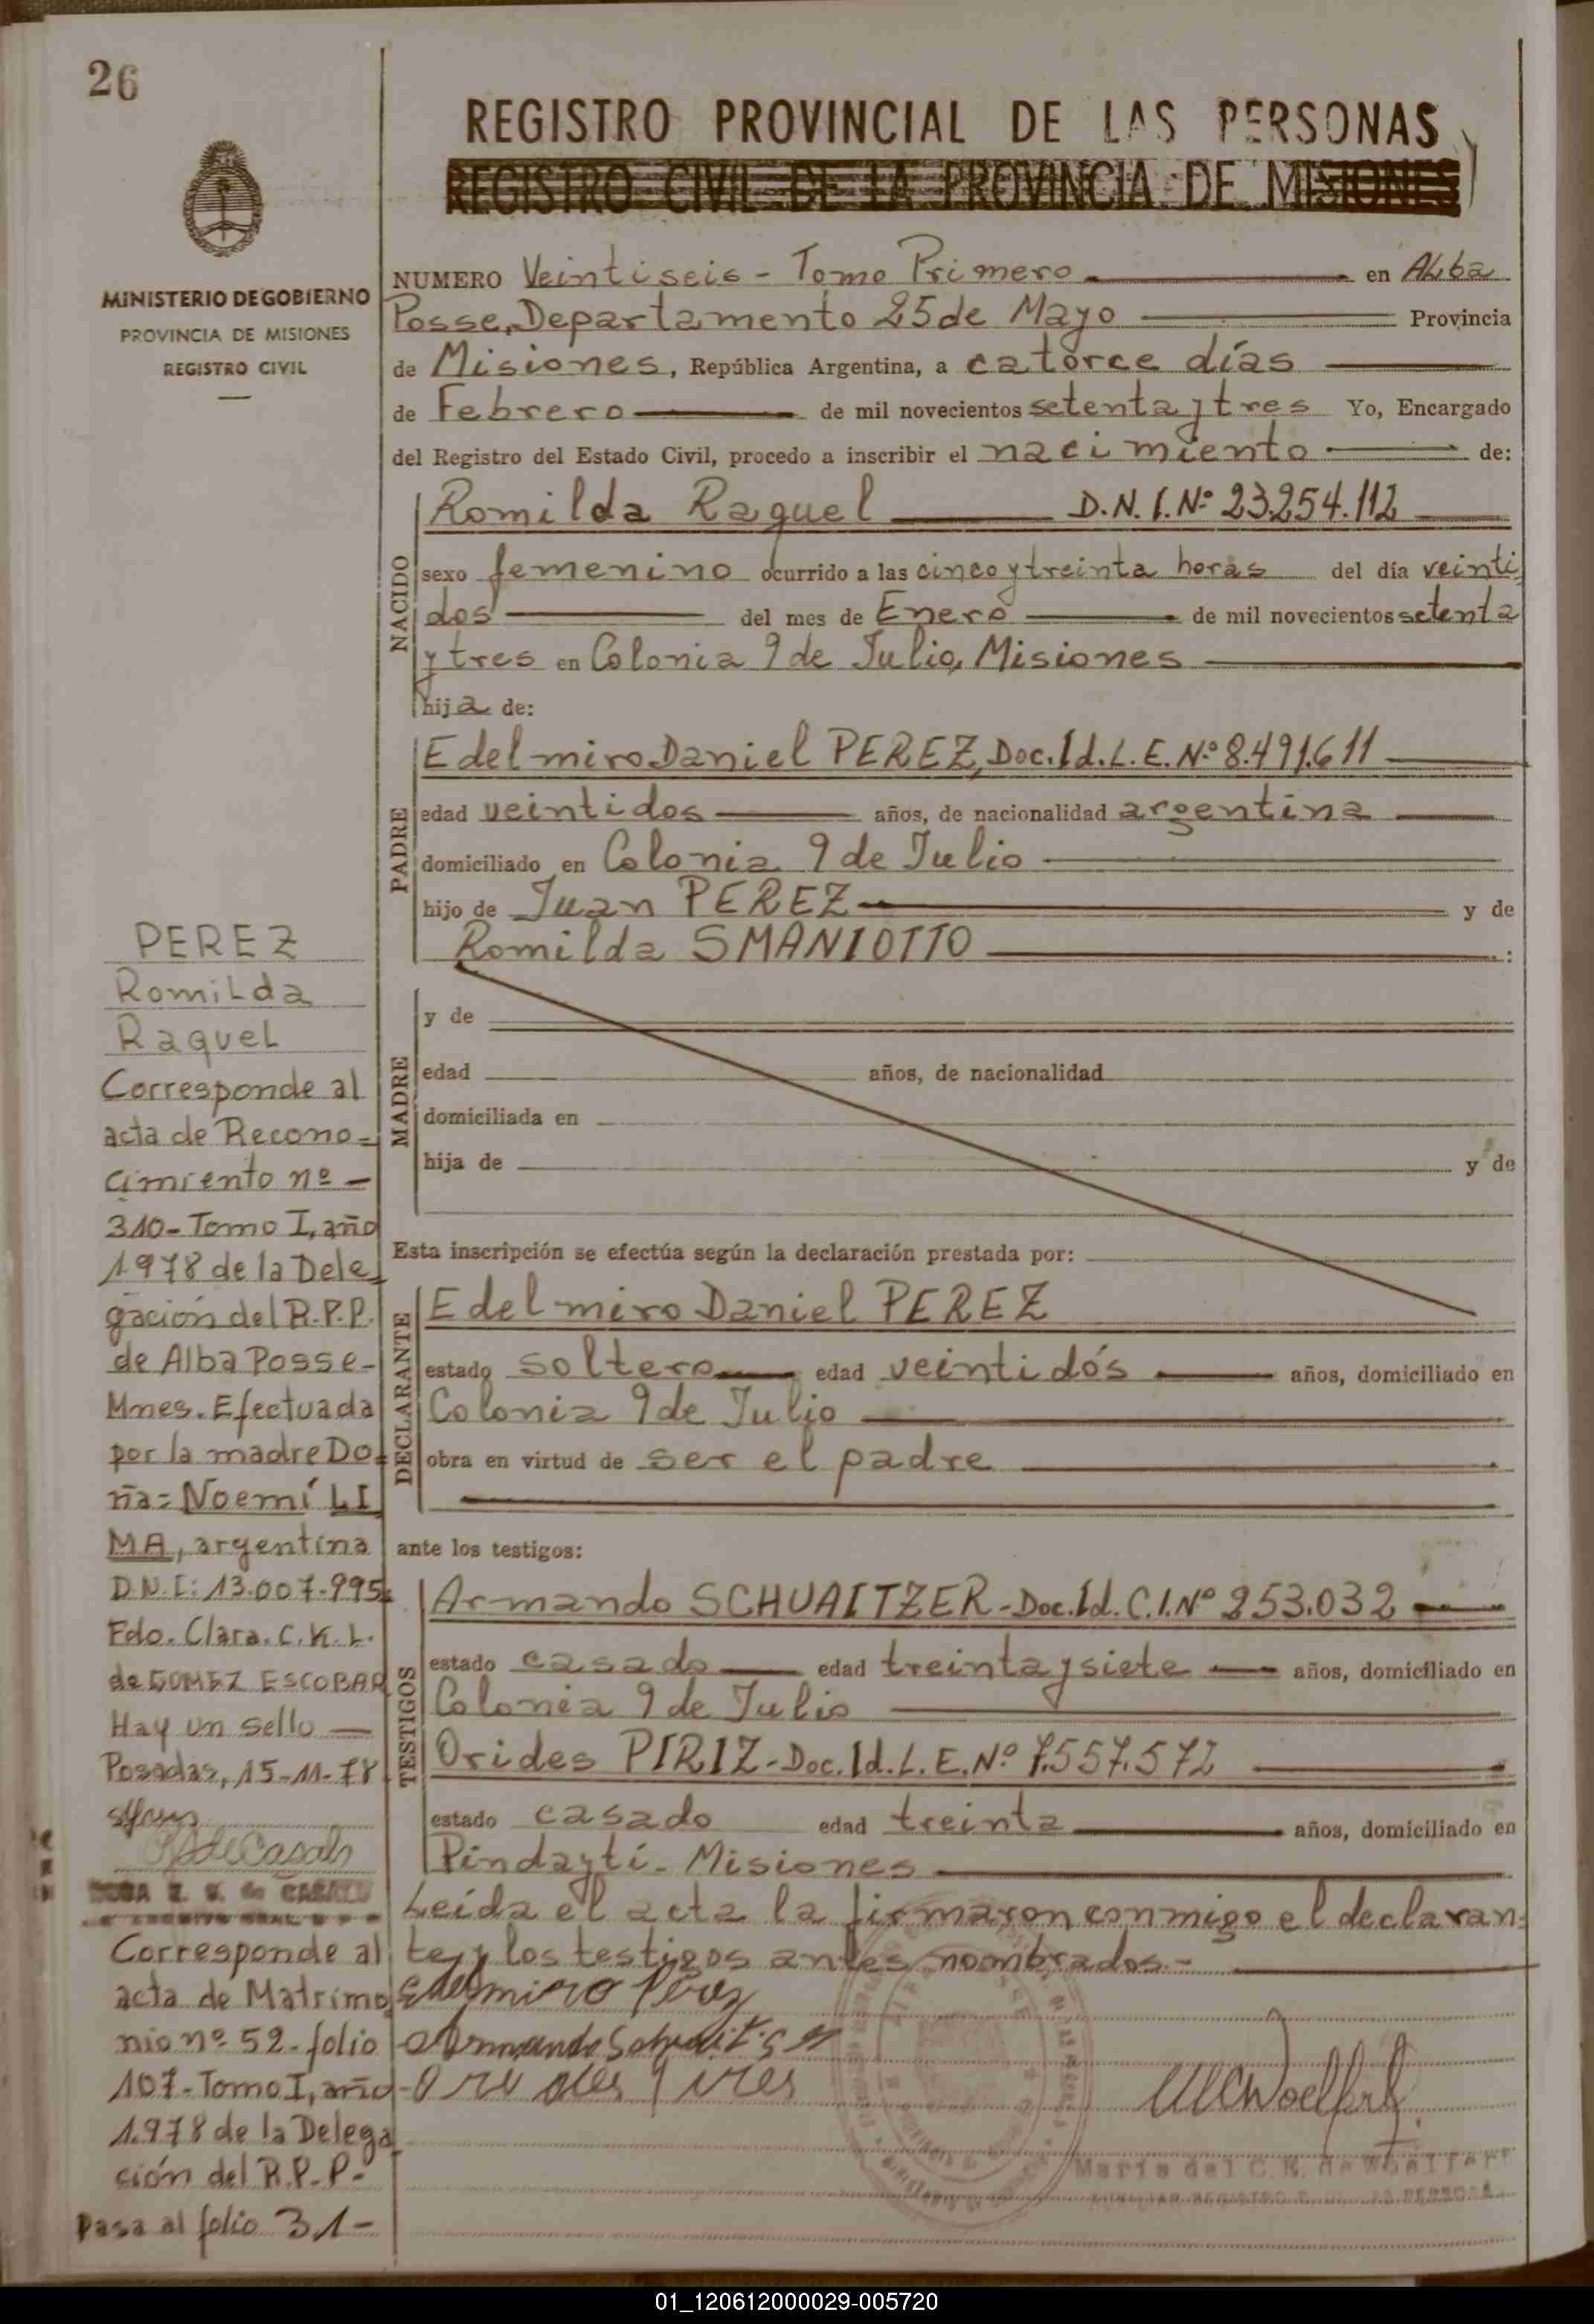 26
MINISTERIO DE GOBIERNO
PROVINCIA DE MISIONES
REGISTRO CIVIL
REGISTRO PROVINCIAL DE LAS PERSONAS
REGISTRO CIVIL DE LA PROVINCIA DE MISIONES
NUMERO Veintiseis - Tomo Primero en Alba
Posse, Departamento 25 de Mayo Provincia
de Misiones, República Argentina, a catorce días
de Febrero de mil novecientos setenta y tres Yo, Encargado
del Registro del Estado Civil, procedo a inscribir el nacimiento de:
NACIDO
Romilda Raquel D.N.I. Nº 23.254.112
sexo femenino ocurrido a las cinco y treinta horas del día veinti
dos del mes de Enero de mil novecientos setenta
y tres en Colonia 9 de Julio, Misiones
hija de:
PADRE
Edelmiro Daniel PEREZ, Doc. Id. L. E. Nº 8.491.611
edad veintidos años, de nacionalidad argentina
domiciliado en Colonia 9 de Julio
hijo de Juan PEREZ y de
Romilda SMANIOTTO :
MADRE
y de
edad años, de nacionalidad
domiciliada en
hija de y de
Esta inscripción se efectúa según la declaración prestada por:
DECLARANTE
Edelmiro Daniel PEREZ
estado soltero edad veintidós años, domiciliado en
Colonia 9 de Julio
obra en virtud de ser el padre
ante los testigos:
TESTIGOS
Armando SCHUAITZER - Doc. Id. C. I. Nº 253.032
estado casado edad treinta y siete años, domiciliado en
Colonia 9 de Julio
Orides PIRIZ - Doc. Id. L. E. Nº 7.557.572
estado casado edad treinta años, domiciliado en
Pindaytí - Misiones
Leída el acta la firmaron conmigo el declaran=
te y los testigos antes nombrados.-
Edelmiro Pérez
María del C. K. de Woelfert
PEREZ
Romilda
Raquel
Corresponde al
acta de Recono=
cimiento nº -
310 - Tomo I, año
1978 de la Dele
gación del R.P.P.
de Alba Posse -
Mnes. Efectuada
por la madre Do=
ña= Noemí LI
MA, argentina
D.N.I: 13.007.995
Fdo. Clara. C. K. L.
de GOMEZ ESCOBAR
Hay un sello
Posadas, 15-11-78
Corresponde al
acta de Matrimo
nio nº 52 - folio
107 - Tomo I, año
1978 de la Delega
ción del R.P.P-
Pasa al folio 31-
01_120612000029-005720